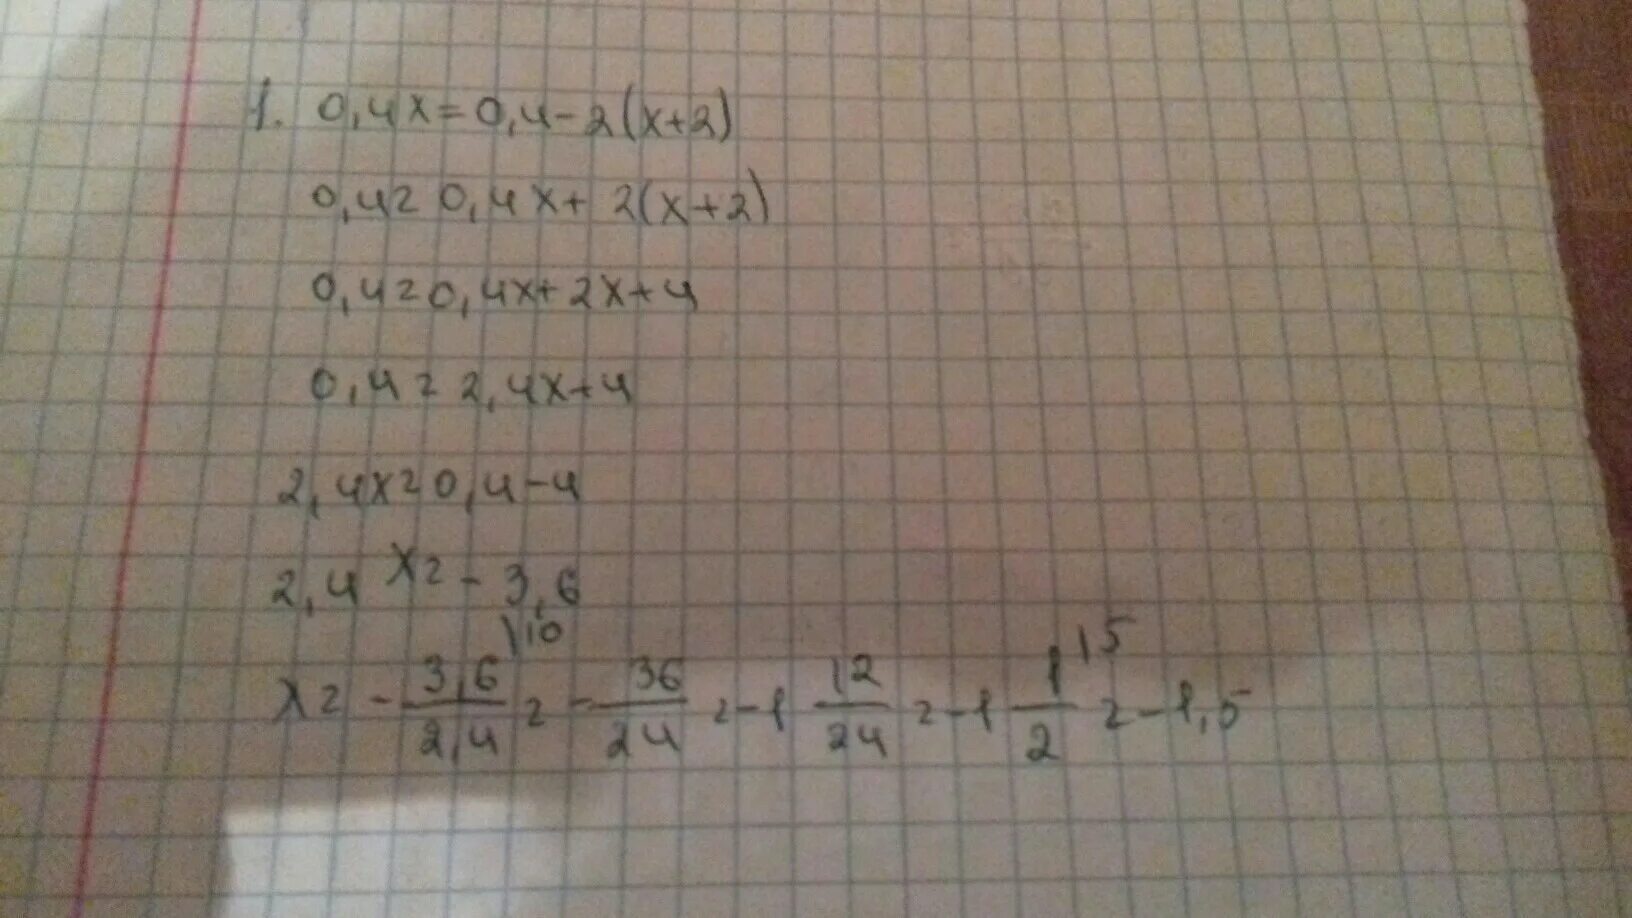 1. 0,4x=0,4-2(x+2)
0,4=0,4x+2(x+2)
0,4=0,4x+2x+4
0,4=2,4x+4
2,4x=0,4-4
2,4x=-3,6
x=-3,6\10/2,4=-36/24=-1 12/24=-1 1\5/2=-1,5